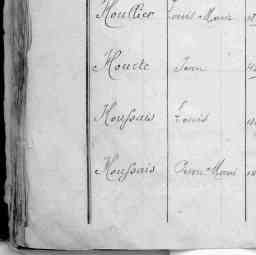 Houllier Louis Marie
Houete Jean
Houssais Louis
Houssais Pierre Marie